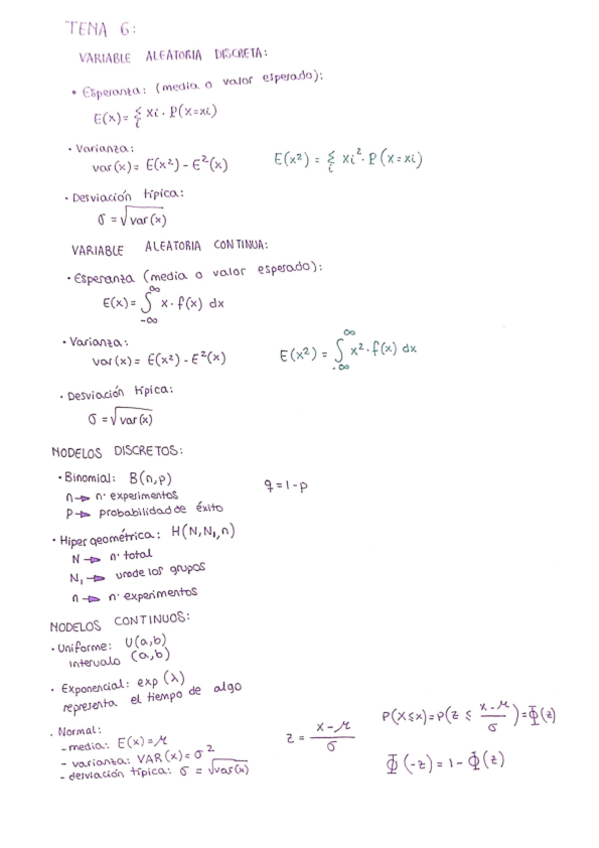 TEMA 6:
VARIABLE ALEATORIA DISCRETA:
• Esperanza: (media o valor esperado):
E(x) = Σ_i xi · P(X=xi)
• Varianza:
var(x) = E(x²) - E²(x) E(x²) = Σ_i xi² · P(x=xi)
• Desviación típica:
σ = √var(x)
VARIABLE ALEATORIA CONTINUA:
• Esperanza (media o valor esperado):
E(x) = ∫_{-∞}^{∞} x · f(x) dx
• Varianza:
var(x) = E(x²) - E²(x) E(x²) = ∫_{-∞}^{∞} x² · f(x) dx
• Desviación típica:
σ = √var(x)
MODELOS DISCRETOS:
• Binomial: B(n,p) q = 1-p
n → nº experimentos
p → probabilidad de éxito
• Hiper geométrica: H(N,N₁,n)
N → nº total
N₁ → uno de los grupos
n → nº experimentos
MODELOS CONTINUOS:
• Uniforme: U(a,b)
intervalo (a,b)
• Exponencial: exp(λ)
representa el tiempo de algo
• Normal:
- media: E(x) = μ
- varianza: VAR(x) = σ²
- desviación típica: σ = √var(x)
z = (x-μ)/σ
P(X≤x) = P(z ≤ (x-μ)/σ) = Φ(z)
Φ(-z) = 1 - Φ(z)